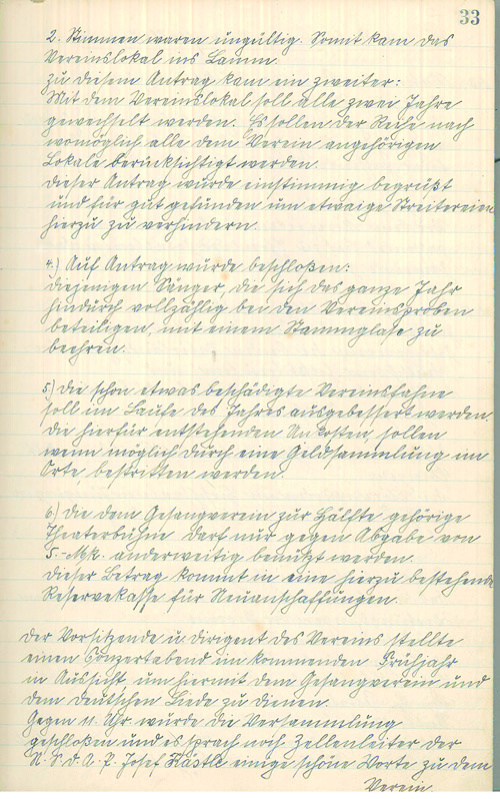 33
2. Stimmen waren ungültig. Somit kam das
Vereinslokal ins Lamm.
Zu diesem Antrag kam ein zweiter:
Mit dem Vereinslokal soll alle zwei Jahre
gewechselt werden. Es sollen der Reihe nach
womöglich alle dem Verein angehörigen
Lokale berücksichtigt werden.
Dieser Antrag wurde einstimmig begrüßt
und für gut gefunden um etwaige Streitereien
hierzu zu verhindern.
4.) Auf Antrag wurde beschloßen:
Diejenigen Sänger, die sich das ganze Jahr
hindurch vollzählig bei den Vereinsproben
beteiligen, mit einem Stammglase zu
beehren.
5.) Die schon etwas beschädigte Vereinsfahne
soll im Laufe des Jahres ausgebessert werden.
Die hierfür entstehenden Unkosten, sollen
wenn möglich durch eine Geldsammlung im
Orte, bestritten werden.
6.) Die dem Gesangverein zur Hälfte gehörige
Theaterbühne darf nur gegen Abgabe von
5.- Mk. anderweitig benützt werden.
Dieser Betrag kommt in eine hierzu bestehende
Reservekasse für Neuanschaffungen.
Der Vorsitzende u. Dirigent des Vereins stellte
einen Konzertabend im kommenden Frühjahr
in Aussicht um hiermit dem Gesangverein und
dem deutschen Liede zu dienen.
Gegen 11. Uhr wurde die Versammlung
geschloßen und es sprach noch Zellenleiter der
N. S. D. A. P. Josef Kästle einige schöne Worte zu dem
Verein.